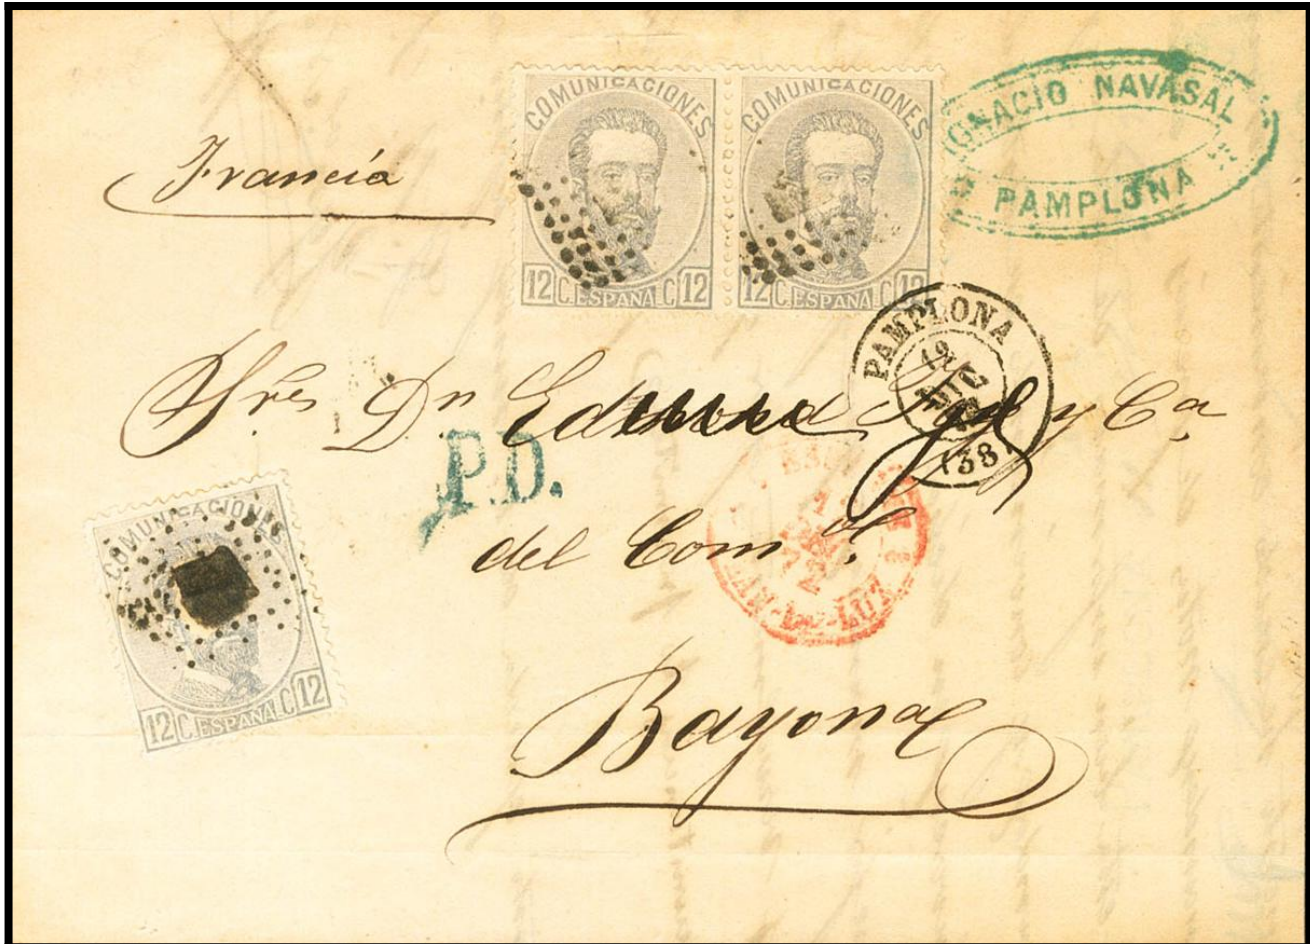 COMUNICACIONES
12 C. ESPAÑA C 12
COMUNICACIONES
12 C. ESPAÑA C 12
IGNACIO NAVASAL
PAMPLONA
Francia
PAMPLONA
12
DIC
(38)
Sres Dn y Ca
P.D.
del Comol
COMUNICACIONES
12 C. ESPAÑA C 12
LUZ
Bayona